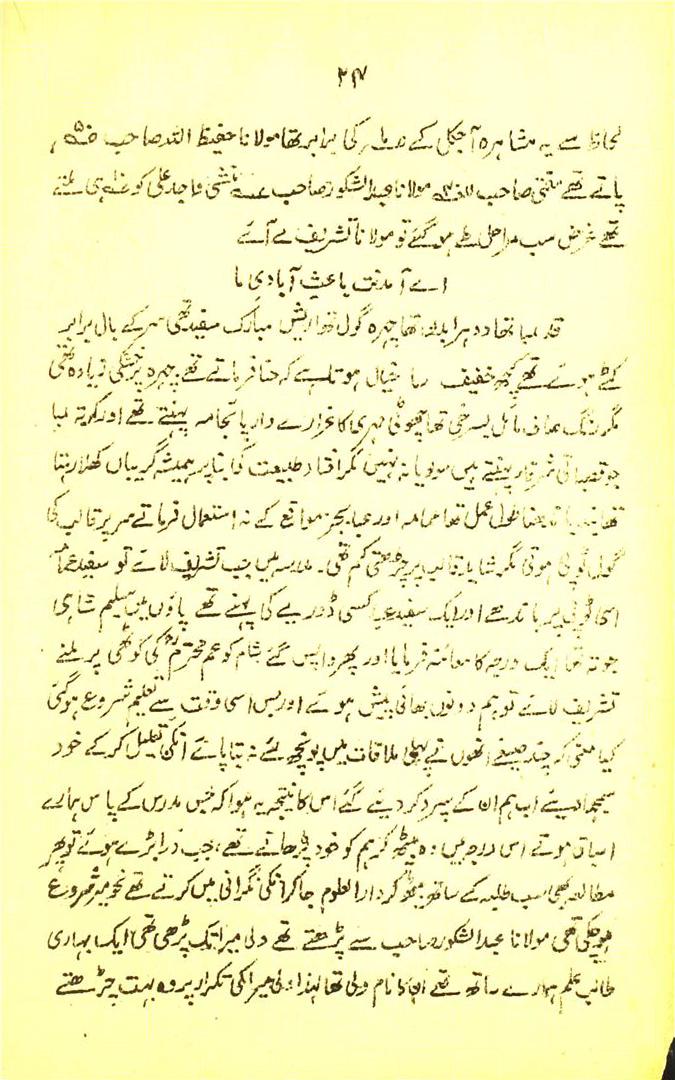 لحاظ سے یہ مشاہرہ آجکل کے کی برابر تھا مولانا حفیظ اللہ صاحب
پاتے تھے مفتی صاحب مولانا عبدالشکور صاحب منشی واجد علی کو ہی ملتے
تھے غرض سب مراحل طے ہو گئے تو مولانا تشریف لے آئے
اے آمدنت باعث آبادی ما
قد لمبا تھا دہرا بدن تھا چہرہ گول تھا ریش مبارک سفید تھی سر کے بال برابر
کٹے ہوئے تھے کچھ خفیف سا خیال ہوتا ہے کہ حنا فرماتے تھے چہرہ پر خشکی زیادہ تھی
مگر رنگ صاف مائل بسرخی تھا چھوٹی مہری کا غرارے دار پائجامہ پہنتے تھے اور کرتہ لمبا
جو قصباتی شرفاء پہنتے ہیں مولویانہ نہیں مگر افتاد طبیعت کی بنا پر ہمیشہ گریباں کھلا رہتا
تھا نیز طول عمل تھا عمامہ اور عبا بجز مواقع کے نہ استعمال فرماتے سر پر قالب کی
گول ٹوپی ہوتی مگر شاید قالب پر چڑھتی کم تھی۔ مدرسہ میں جب تشریف لائے تو سفید عمامہ
اسی ٹوپی پر باندھے اور ایک سفید عبا کسی ڈوریے کی پہنے تھے پاؤں میں سلیم شاہی
جوتہ تھا ایک درجہ کا معائنہ فرمایا اور پھر واپس گئے شام کو عم محترم کی کوٹھی پر ملنے
تشریف لائے تو ہم دونوں بھائی پیش ہوئے اور بس اسی وقت سے تعلیم شروع ہو گئی
کیا معنی کہ چند صیغے انھوں نے پہلی ملاقات میں پونچھ لئے نہ بتا پائے انکی تعلیل کر کے خود
سمجھا دیئے اب ہم ان کے سپرد کر دیئے گئے اس کا نتیجہ یہ ہوا کہ جس مدرس کے پاس ہمارے
اسباق ہوتے اس درجہ میں وہ بیٹھ کر ہم کو خود پڑھاتے تھے، جب ذرا بڑے ہوئے تو پھر
مطالعہ بھی سب طلبہ کے ساتھ بیٹھ کر دارالعلوم جا کر انکی نگرانی میں کرتے تھے نحو میر شروع
ہو چکی تھی مولانا عبدالشکور صاحب سے پڑھتے تھے ولی میرا تک پڑھی تھی ایک بہاری
طالب علم ہمارے ساتھ تھے ان کا نام ولی تھا لہذا ولی میرا کی تکرار پر وہ بہت چڑھتے